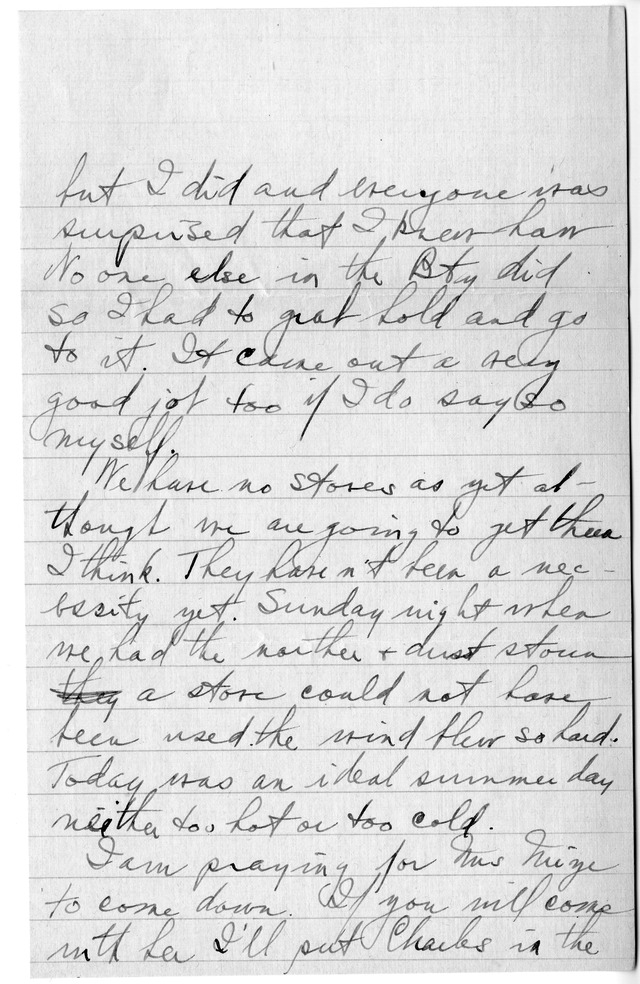 but I did and everyone was
surprised that I knew how
No one else in the Bty did
so I had to grab hold and go
to it. It came out a very
good job too if I do say so
myself.
We have no stoves as yet al-
though we are going to get them
I think. They haven't been a nec-
essity yet. Sunday night when
we had the norther + dust storm
they a stove could not have
been used. the wind blew so hard.
Today was an ideal summer day
neither too hot or too cold.
I am praying for Mrs Mize
to come down. If you will come
with her I'll put Charles in the